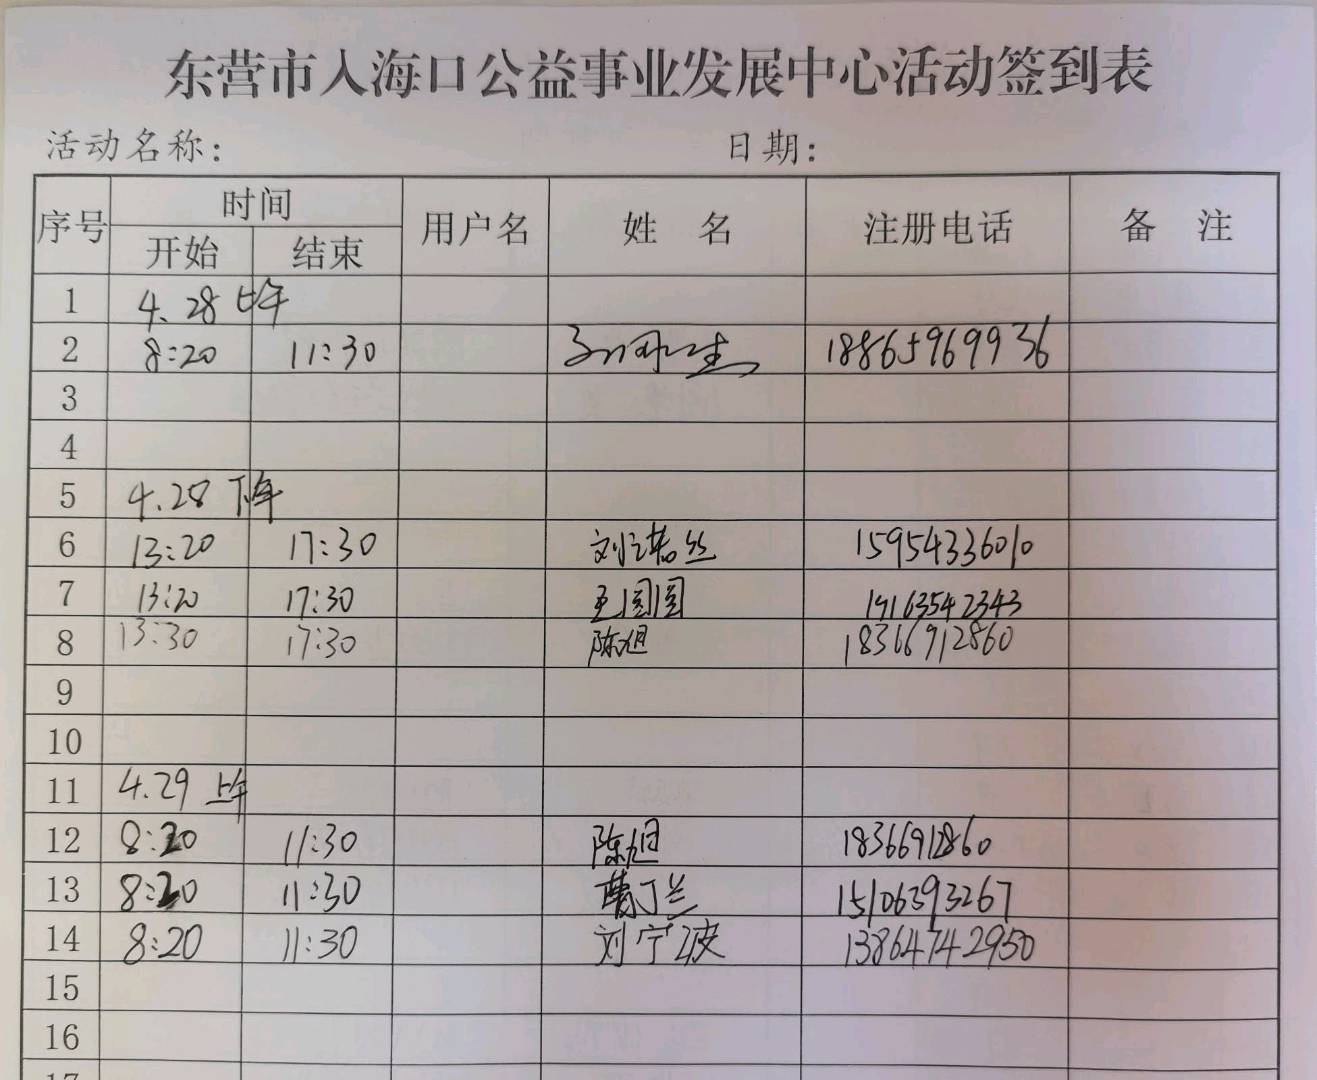 东营市入海口公益事业发展中心活动签到表
活动名称: 日期:
序号 时间 用户名 姓 名 注册电话 备 注
开始 结束
1 4.28 上午
2 8:20 11:30 18865969936
3
4
5 4.28 下午
6 13:20 17:30 刘 丝 15954336010
7 13:20 17:30 王园园
8 13:30 17:30 陈旭 18366912860
9
10
11 4.29 上午
12 8:20 11:30 陈旭 18366912860
13 8:20 11:30 曹丁兰 15106393267
14 8:20 11:30 刘宁波 13864742950
15
16
17